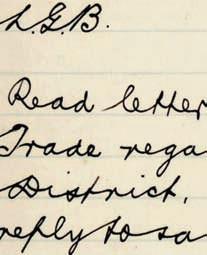 L.G.B.
Read letter
Trade rega
District.
reply to sa